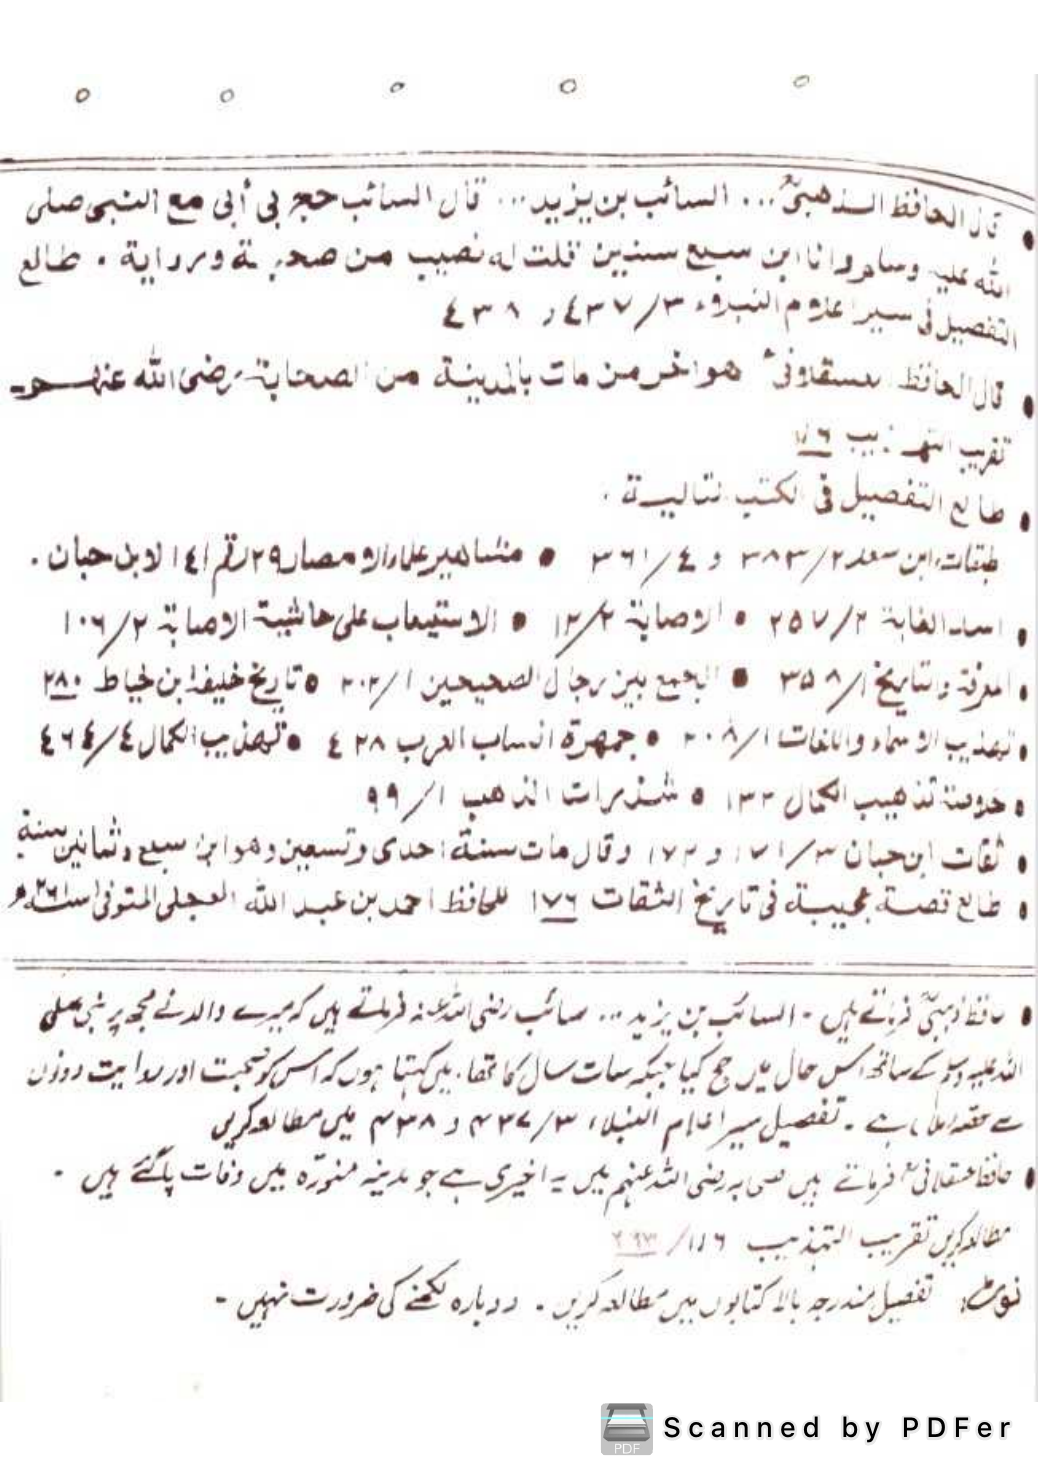 • قال الحافظ الذهبیؒ... السائب بن یزید... قال السائب حج بی أبی مع النبی صلی
الله علیه وسلم وانا ابن سبع سنین قلت له نصیب من صحبة وروایة . طالع
التفصیل فی سیر اعلام النبلاء ٣/٤٣٧ و ٤٣٨
• قال الحافظ العسقلانیؒ هو اٰخر من مات بالمدینة من الصحابة رضی الله عنهم
تقریب التهذیب ١١٦
• طالع التفصیل فی الکتب التالیة .
طبقات ابن سعد ٢/٣٨٣ و ٤/٣٦١ • مشاهیر علماء الامصار ٢٩ رقم ١٤١ لابن حبان .
• اسد الغابة ٢/٢٥٧ • الاصابة ٢/١٢ • الاستیعاب علی حاشیة الاصابة ٢/١٠٦
• المعرفة والتاریخ ١/٣٥٨ • الجمع بین رجال الصحیحین ١/٢٠٢ • تاریخ خلیفة ابن خیاط ٢٨٠
• تهذیب الاسماء واللغات ١/٢٠٨ • جمهرة انساب العرب ٤٢٨ • تهذیب الکمال ٤/٤٦٤
• خلاصة تذهیب الکمال ١٣٢ • شذرات الذهب ١/٩٩
• ثقات ابن حبان ٣/١٧١ و ١٧٢ وقال مات سنة احدی وتسعین وهو ابن سبع وثمانین سنة
• طالع قصة عجیبة فی تاریخ الثقات ١٧٦ للحافظ احمد بن عبد الله العجلی المتوفی سنة ٢٦١ھ
• حافظ ذہبیؒ فرماتے ہیں - السائب بن یزید ... سائب رضی اللہ عنہ فرماتے ہیں کہ میرے والد نے مجھ پر نبی صلی
اللہ علیہ وسلم کے ساتھ اس حال میں حج کیا جبکہ سات سال کا تھا. میں کہتا ہوں کہ اس کو صحبت اور روایت دونوں
سے حصہ ملا ہے . تفصیل سیر اعلام النبلاء ۳/۴۳۷ و ۴۳۸ میں مطالعہ کریں
• حافظ عسقلانیؒ فرماتے ہیں صحابہ رضی اللہ عنہم میں یہ اخیری ہے جو مدینہ منوّرہ میں وفات پاگئے ہیں -
مطالعہ کریں تقریب التہذیب ۱۱۶/
نوٹ: تفصیل مندرجہ بالا کتابوں میں مطالعہ کریں . دوبارہ لکھنے کی ضرورت نہیں -
PDF
Scanned by PDFer